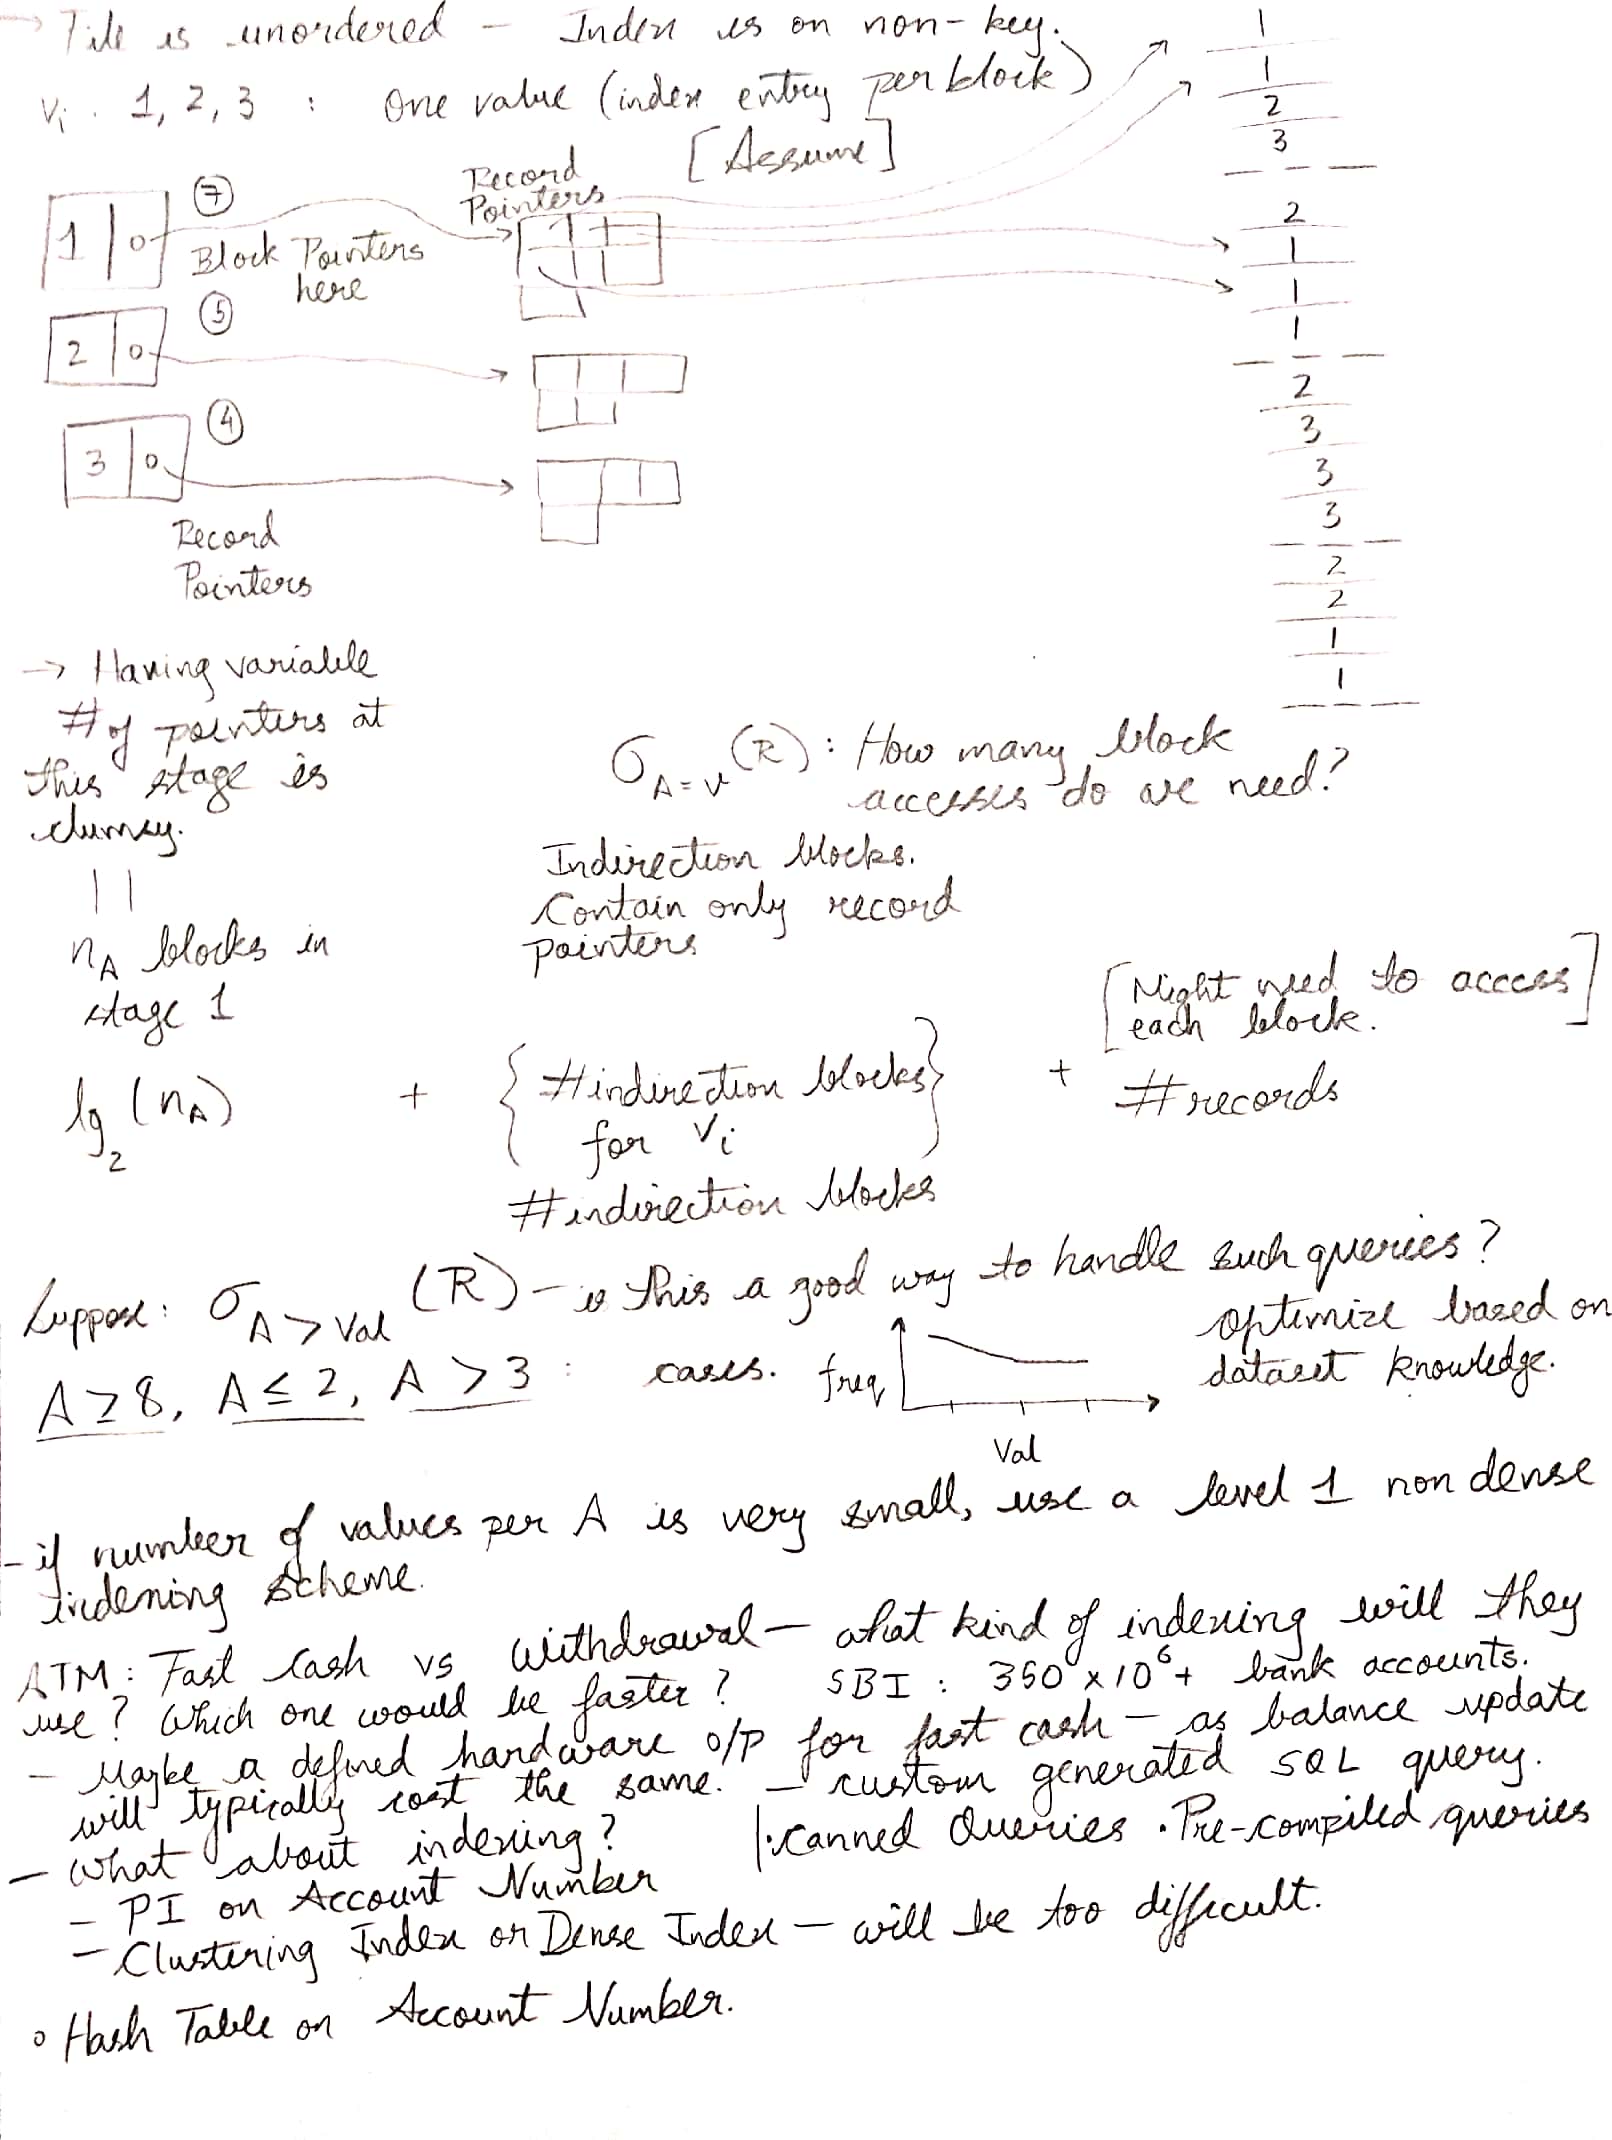 → File is unordered – Index is on non-key.
Vi : 1, 2, 3 : One value (index entry per block)
[Assume]
1
1
2
3
2
1
1
1
2
3
3
3
2
2
1
1
1 0
7
Block Pointers
here
Record
Pointers
2 0
5
3 0
4
Record
Pointers
→ Having variable
# of pointers at
this stage is
clumsy.
||
nA blocks in
stage 1
σA=v(R) : How many block
accesses do we need?
Indirection blocks.
Contain only record
pointers
[Might need to access
each block.]
lg2(nA) + {#indirection blocks
for Vi} + #records
#indirection blocks
Suppose: σA>Val(R) – is this a good way to handle such queries?
A≥8, A≤2, A>3 : cases.
freq
Val
optimize based on
dataset knowledge.
– if number of values per A is very small, use a level 1 non dense
indexing scheme.
ATM : Fast Cash vs Withdrawal – what kind of indexing will they
use? Which one would be faster? SBI : 350 x 10^6+ bank accounts.
– Maybe a defined hardware o/p for fast cash – as balance update
will typically cost the same. – custom generated SQL query.
– What about indexing? |: canned Queries • Pre-compiled queries
– PI on Account Number
– Clustering Index or Dense Index – will be too difficult.
◦ Hash Table on Account Number.